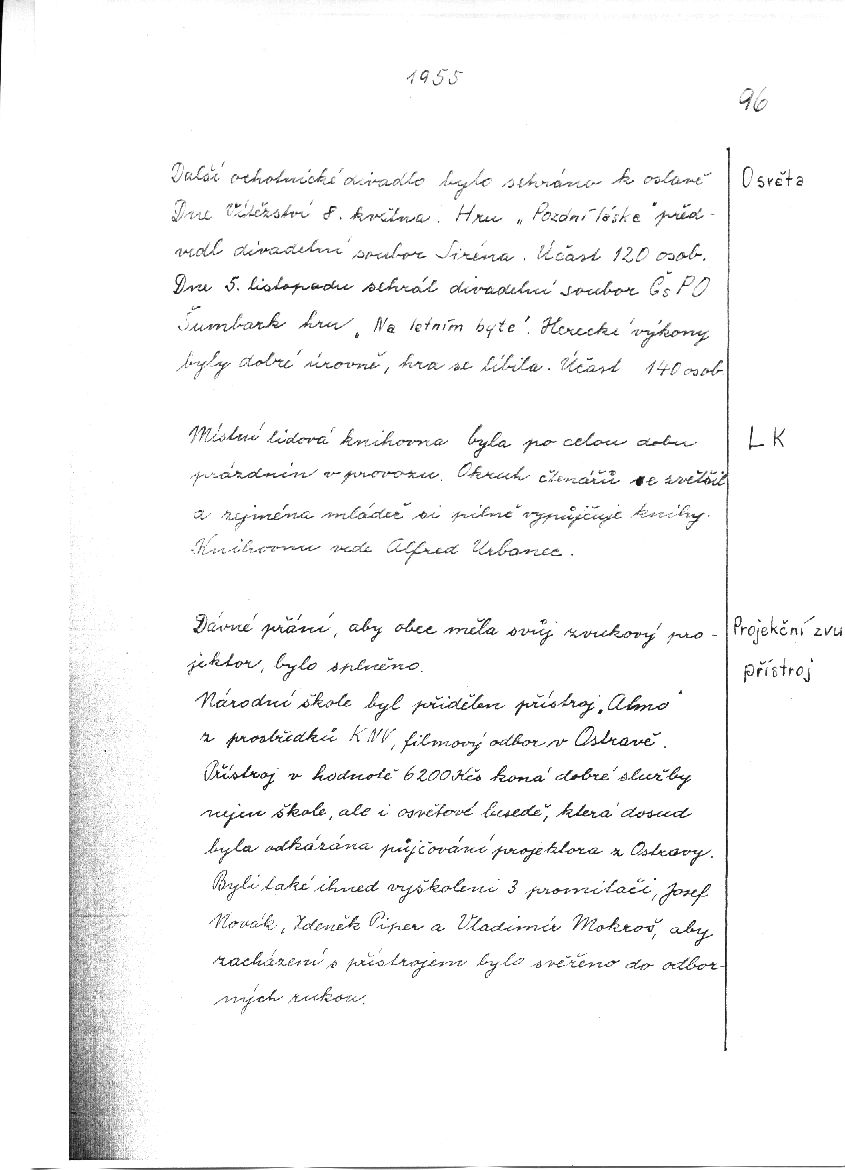 1955
96
Další ochotnické divadlo bylo sehráno k oslavě
Osvěta
Dne Vítězství 8. května. Hru „Pozdní láska" před-
vedl divadelní soubor Siréna. Účast 120 osob.
Dne 5. listopadu sehrál divadelní soubor ČsPO
Šumbark hru „Na letním bytě". Herecké výkony
byly dobré úrovně, hra se líbila. Účast 140 osob
Místní lidová knihovna byla po celou dobu
LK
prázdnin v provozu. Okruh čtenářů se zvětšil
a zejména mládež si pilně vypůjčuje knihy.
Knihovnu vede Alfred Urbanec.
Dávné přání, aby obec měla svůj zvukový pro-
Projekční zvu
jektor, bylo splněno.
přístroj
Národní škole byl přidělen přístroj „Almo"
z prostředků KNV, filmový odbor v Ostravě.
Přístroj v hodnotě 6200 Kčs koná dobré služby
nejen škole, ale i osvětové besedě, která dosud
byla odkázána půjčování projektora z Ostravy.
Byli také ihned vyškoleni 3 promítači, Josef
Novák, Zdeněk Piper a Vladimír Mokroš, aby
zacházení s přístrojem bylo svěřeno do odbor-
ných rukou.